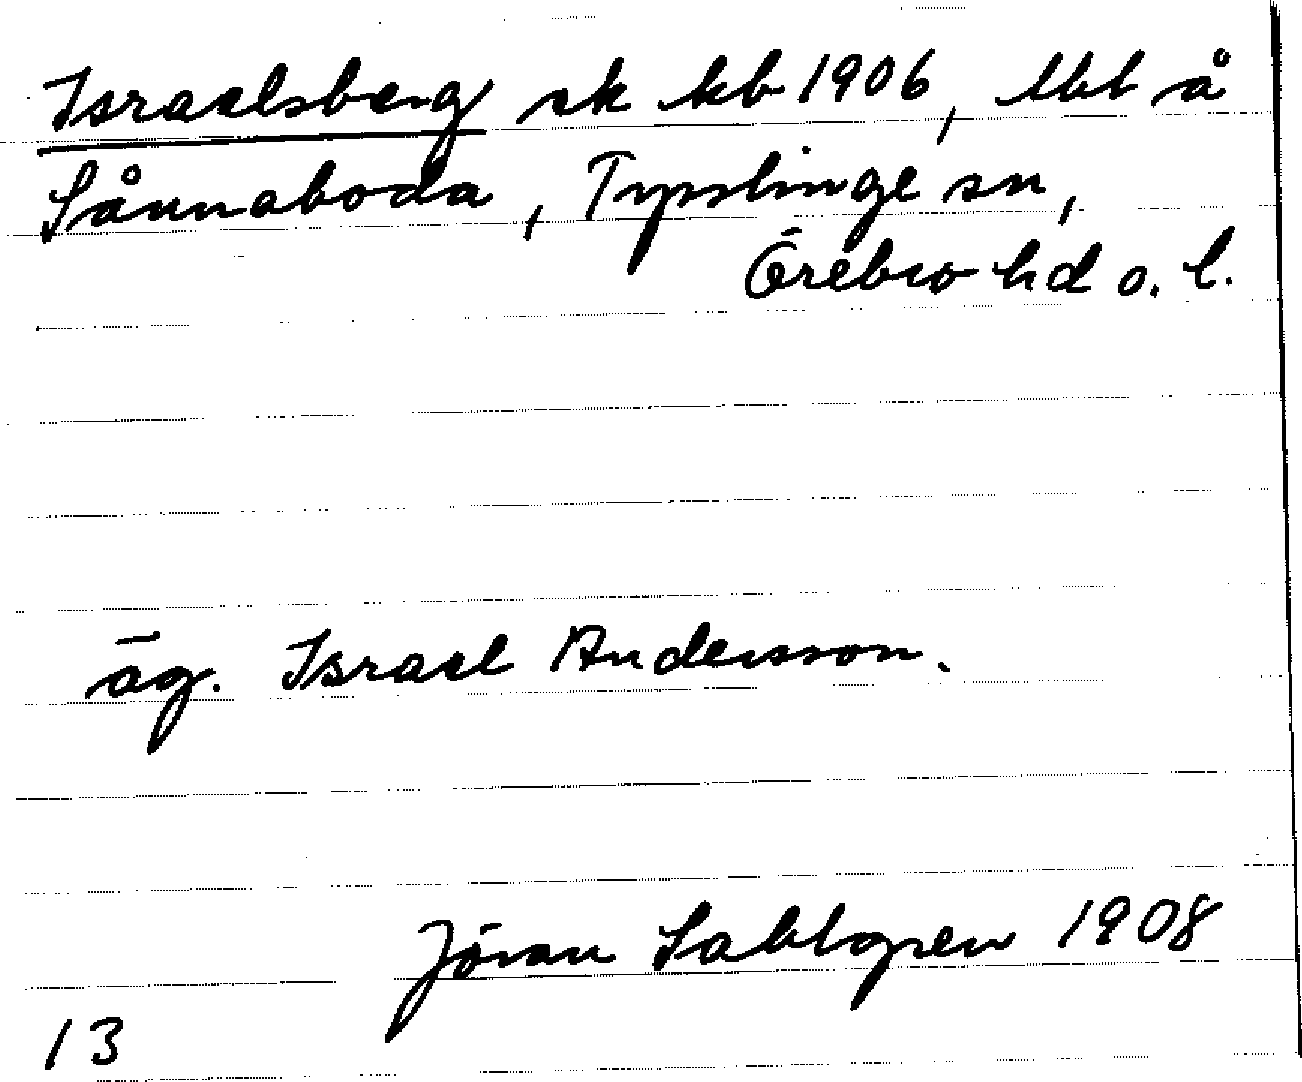 Israelsberg sk kb 1906, lht å
Sånnaboda, Tysslinge sn,
Örebro hd o. l.
äg. Israel Andersson.
Jöran Sahlgren 1908
13